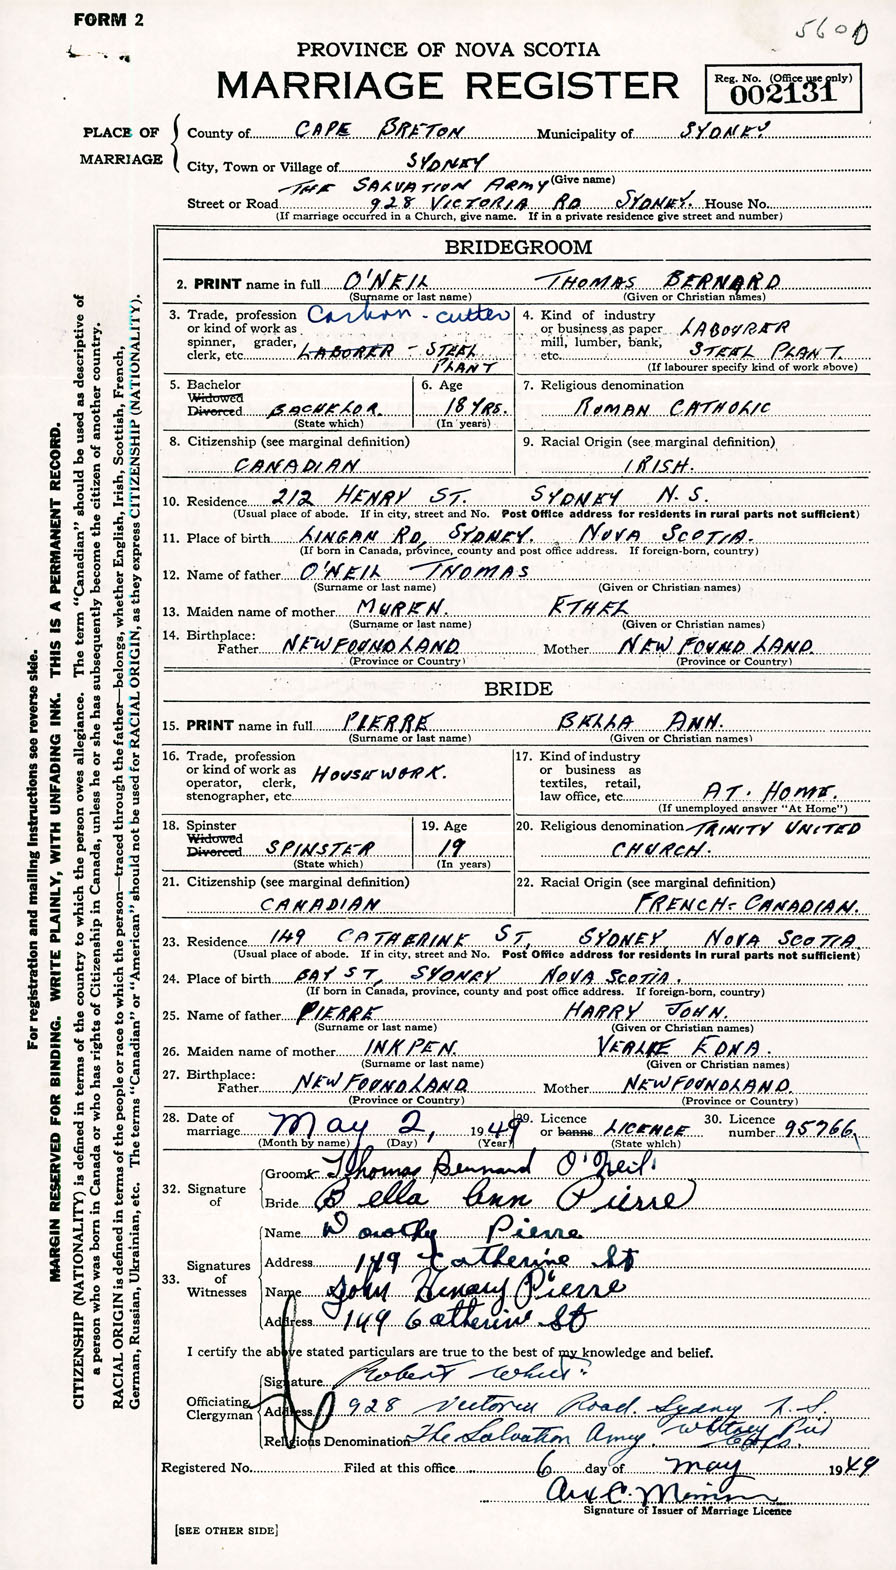 FORM 2
560D
PROVINCE OF NOVA SCOTIA
MARRIAGE REGISTER
Reg. No. (Office use only)
002131
PLACE OF MARRIAGE
County of CAPE BRETON Municipality of SYDNEY
City, Town or Village of SYDNEY
(Give name)
THE SALVATION ARMY
Street or Road 928 VICTORIA RD SYDNEY. House No.
(If marriage occurred in a Church, give name. If in a private residence give street and number)
BRIDEGROOM
2. PRINT name in full O'NEIL THOMAS BERNARD
(Surname or last name) (Given or Christian names)
3. Trade, profession or kind of work as spinner, grader, clerk, etc. Carbon-cutter LABORER - STEEL PLANT
4. Kind of industry or business as paper mill, lumber, bank, etc. LABOURER STEEL PLANT.
(If labourer specify kind of work above)
5. Bachelor Widowed Divorced BACHELOR.
(State which)
6. Age 18 YRS.
(In years)
7. Religious denomination
ROMAN CATHOLIC
8. Citizenship (see marginal definition)
CANADIAN
9. Racial Origin (see marginal definition)
IRISH.
10. Residence 212 HENRY ST. SYDNEY N.S.
(Usual place of abode. If in city, street and No. Post Office address for residents in rural parts not sufficient)
11. Place of birth LINGAN RD, SYDNEY. NOVA SCOTIA.
(If born in Canada, province, county and post office address. If foreign-born, country)
12. Name of father O'NEIL THOMAS
(Surname or last name) (Given or Christian names)
13. Maiden name of mother MUREN. ETHEL
(Surname or last name) (Given or Christian names)
14. Birthplace: Father NEWFOUNDLAND Mother NEWFOUNDLAND.
(Province or Country) (Province or Country)
BRIDE
15. PRINT name in full PIERRE BELLA ANN.
(Surname or last name) (Given or Christian names)
16. Trade, profession or kind of work as operator, clerk, stenographer, etc. HOUSEWORK.
17. Kind of industry or business as textiles, retail, law office, etc. AT. HOME.
(If unemployed answer "At Home")
18. Spinster Widowed Divorced SPINSTER
(State which)
19. Age 19
(In years)
20. Religious denomination TRINITY UNITED CHURCH.
21. Citizenship (see marginal definition)
CANADIAN
22. Racial Origin (see marginal definition)
FRENCH-CANADIAN.
23. Residence 149 CATHERINE ST, SYDNEY NOVA SCOTIA.
(Usual place of abode. If in city, street and No. Post Office address for residents in rural parts not sufficient)
24. Place of birth BAY ST, SYDNEY NOVA SCOTIA.
(If born in Canada, province, county and post office address. If foreign-born, country)
25. Name of father PIERRE HARRY JOHN.
(Surname or last name) (Given or Christian names)
26. Maiden name of mother INKPEN. EDNA.
(Surname or last name) (Given or Christian names)
27. Birthplace: Father NEWFOUNDLAND Mother NEWFOUNDLAND.
(Province or Country) (Province or Country)
28. Date of marriage May 2, 1949
(Month by name) (Day) (Year)
29. Licence or banns LICENCE
(State which)
30. Licence number 95766
32. Signature of
Groom Thomas Bernard O'Neil
Bride Bella Ann Pierre
33. Signatures of Witnesses
Name Dorothy Pierre
Address 149 Catherine St
Name John Henary Pierre
Address 149 Catherine St
I certify the above stated particulars are true to the best of my knowledge and belief.
Officiating Clergyman
Signature Robert White.
Address 928 Victoria Road. Sydney N.S.
Religious Denomination The Salvation Army. Whitney Pier Corps.
Registered No. Filed at this office 6 day of May 1949
Signature of Issuer of Marriage Licence
[SEE OTHER SIDE]
For registration and mailing instructions see reverse side.
MARGIN RESERVED FOR BINDING. WRITE PLAINLY, WITH UNFADING INK. THIS IS A PERMANENT RECORD.
CITIZENSHIP (NATIONALITY) is defined in terms of the country to which the person owes allegiance. The term "Canadian" should be used as descriptive of
a person who was born in Canada or who has rights of Citizenship in Canada, unless he or she has subsequently become the citizen of another country.
RACIAL ORIGIN is defined in terms of the people or race to which the person—traced through the father—belongs, whether English, Irish, Scottish, French,
German, Russian, Ukrainian, etc. The terms "Canadian" or "American" should not be used for RACIAL ORIGIN, as they express CITIZENSHIP (NATIONALITY).